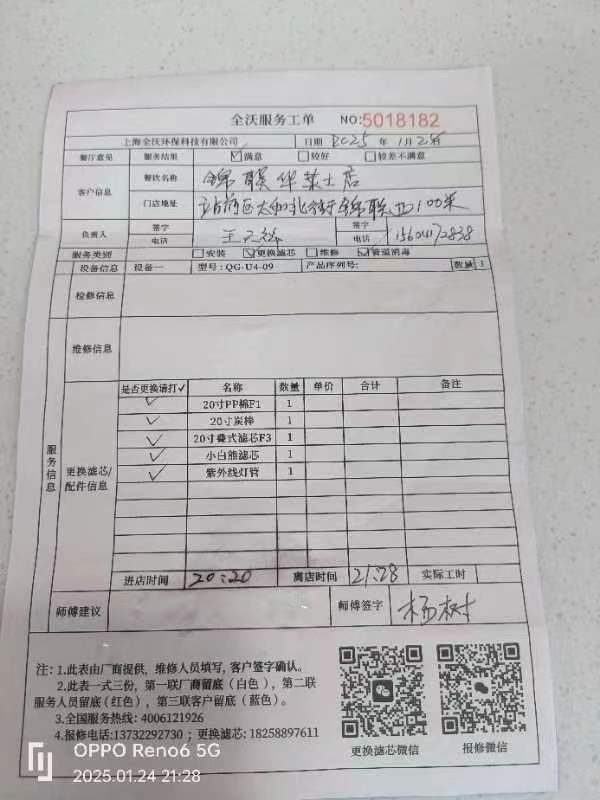 全沃服务工单 NO:5018182
上海全沃环保科技有限公司 日期 2025年1月24
餐厅意见 服务结果 ☑满意 □较好 □较差不满意
客户信息 餐饮名称 锦联华莱士店
门店地址 站前区太和北街锦联西100米
负责人 签字 王 签字
电话 电话 15604172838
服务类别 □安装 ☑更换滤芯 □维修 ☑管道消毒
设备信息 设备一 型号:QG-U4-09 产品序列号: 数量 1
检修信息
维修信息
服务信息
更换滤芯/配件信息
是否更换请打✓ 名称 数量 单价 合计 备注
✓ 20寸PP棉F1 1
✓ 20寸炭棒 1
✓ 20寸叠式滤芯F3 1
✓ 小白熊滤芯 1
✓ 紫外线灯管 1
进店时间 20:20 离店时间 21:28 实际工时
师傅建议 师傅签字 杨树
注:1.此表由厂商提供,维修人员填写,客户签字确认。
2.此表一式三份,第一联厂商留底(白色),第二联
服务人员留底(红色),第三联客户留底(蓝色)。
3.全国服务热线:4006121926
4.报修电话:13732292730;更换滤芯:18258897611
更换滤芯微信 报修微信
OPPO Reno6 5G
2025.01.24 21:28